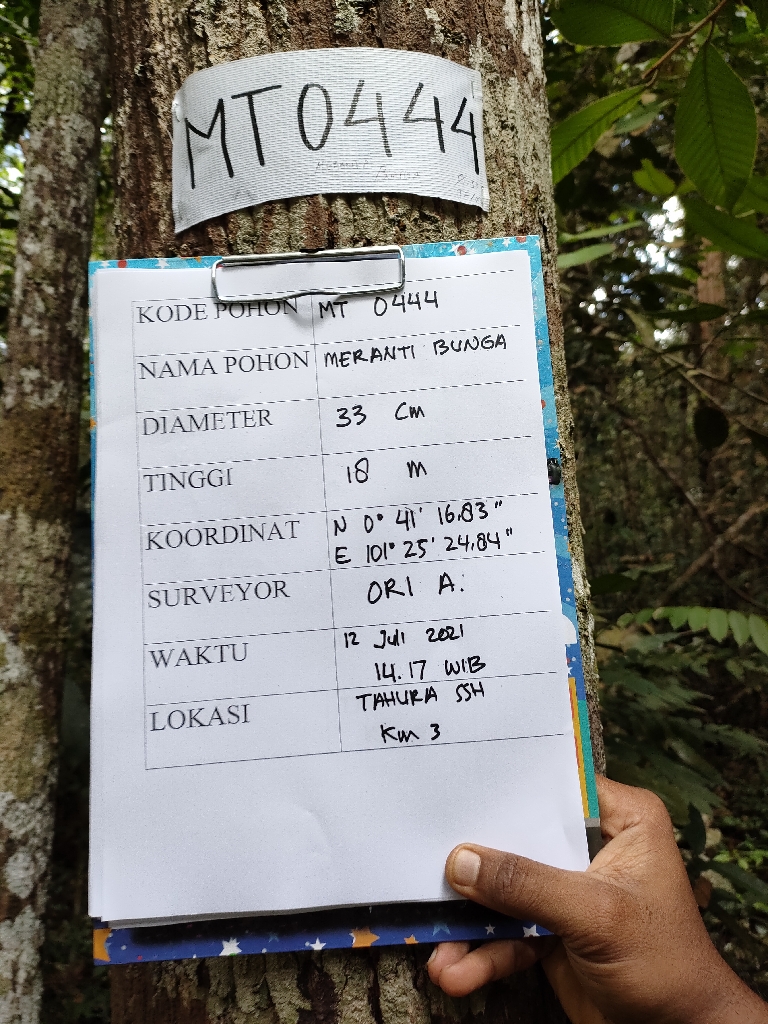 MT0444
KODE POHON MT 0444
NAMA POHON MERANTI BUNGA
DIAMETER 33 Cm
TINGGI 18 m
KOORDINAT N 0° 41' 16.83"
E 101° 25' 24.84"
SURVEYOR ORI A.
WAKTU 12 Juli 2021
14.17 WIB
LOKASI TAHURA SSH
Km 3